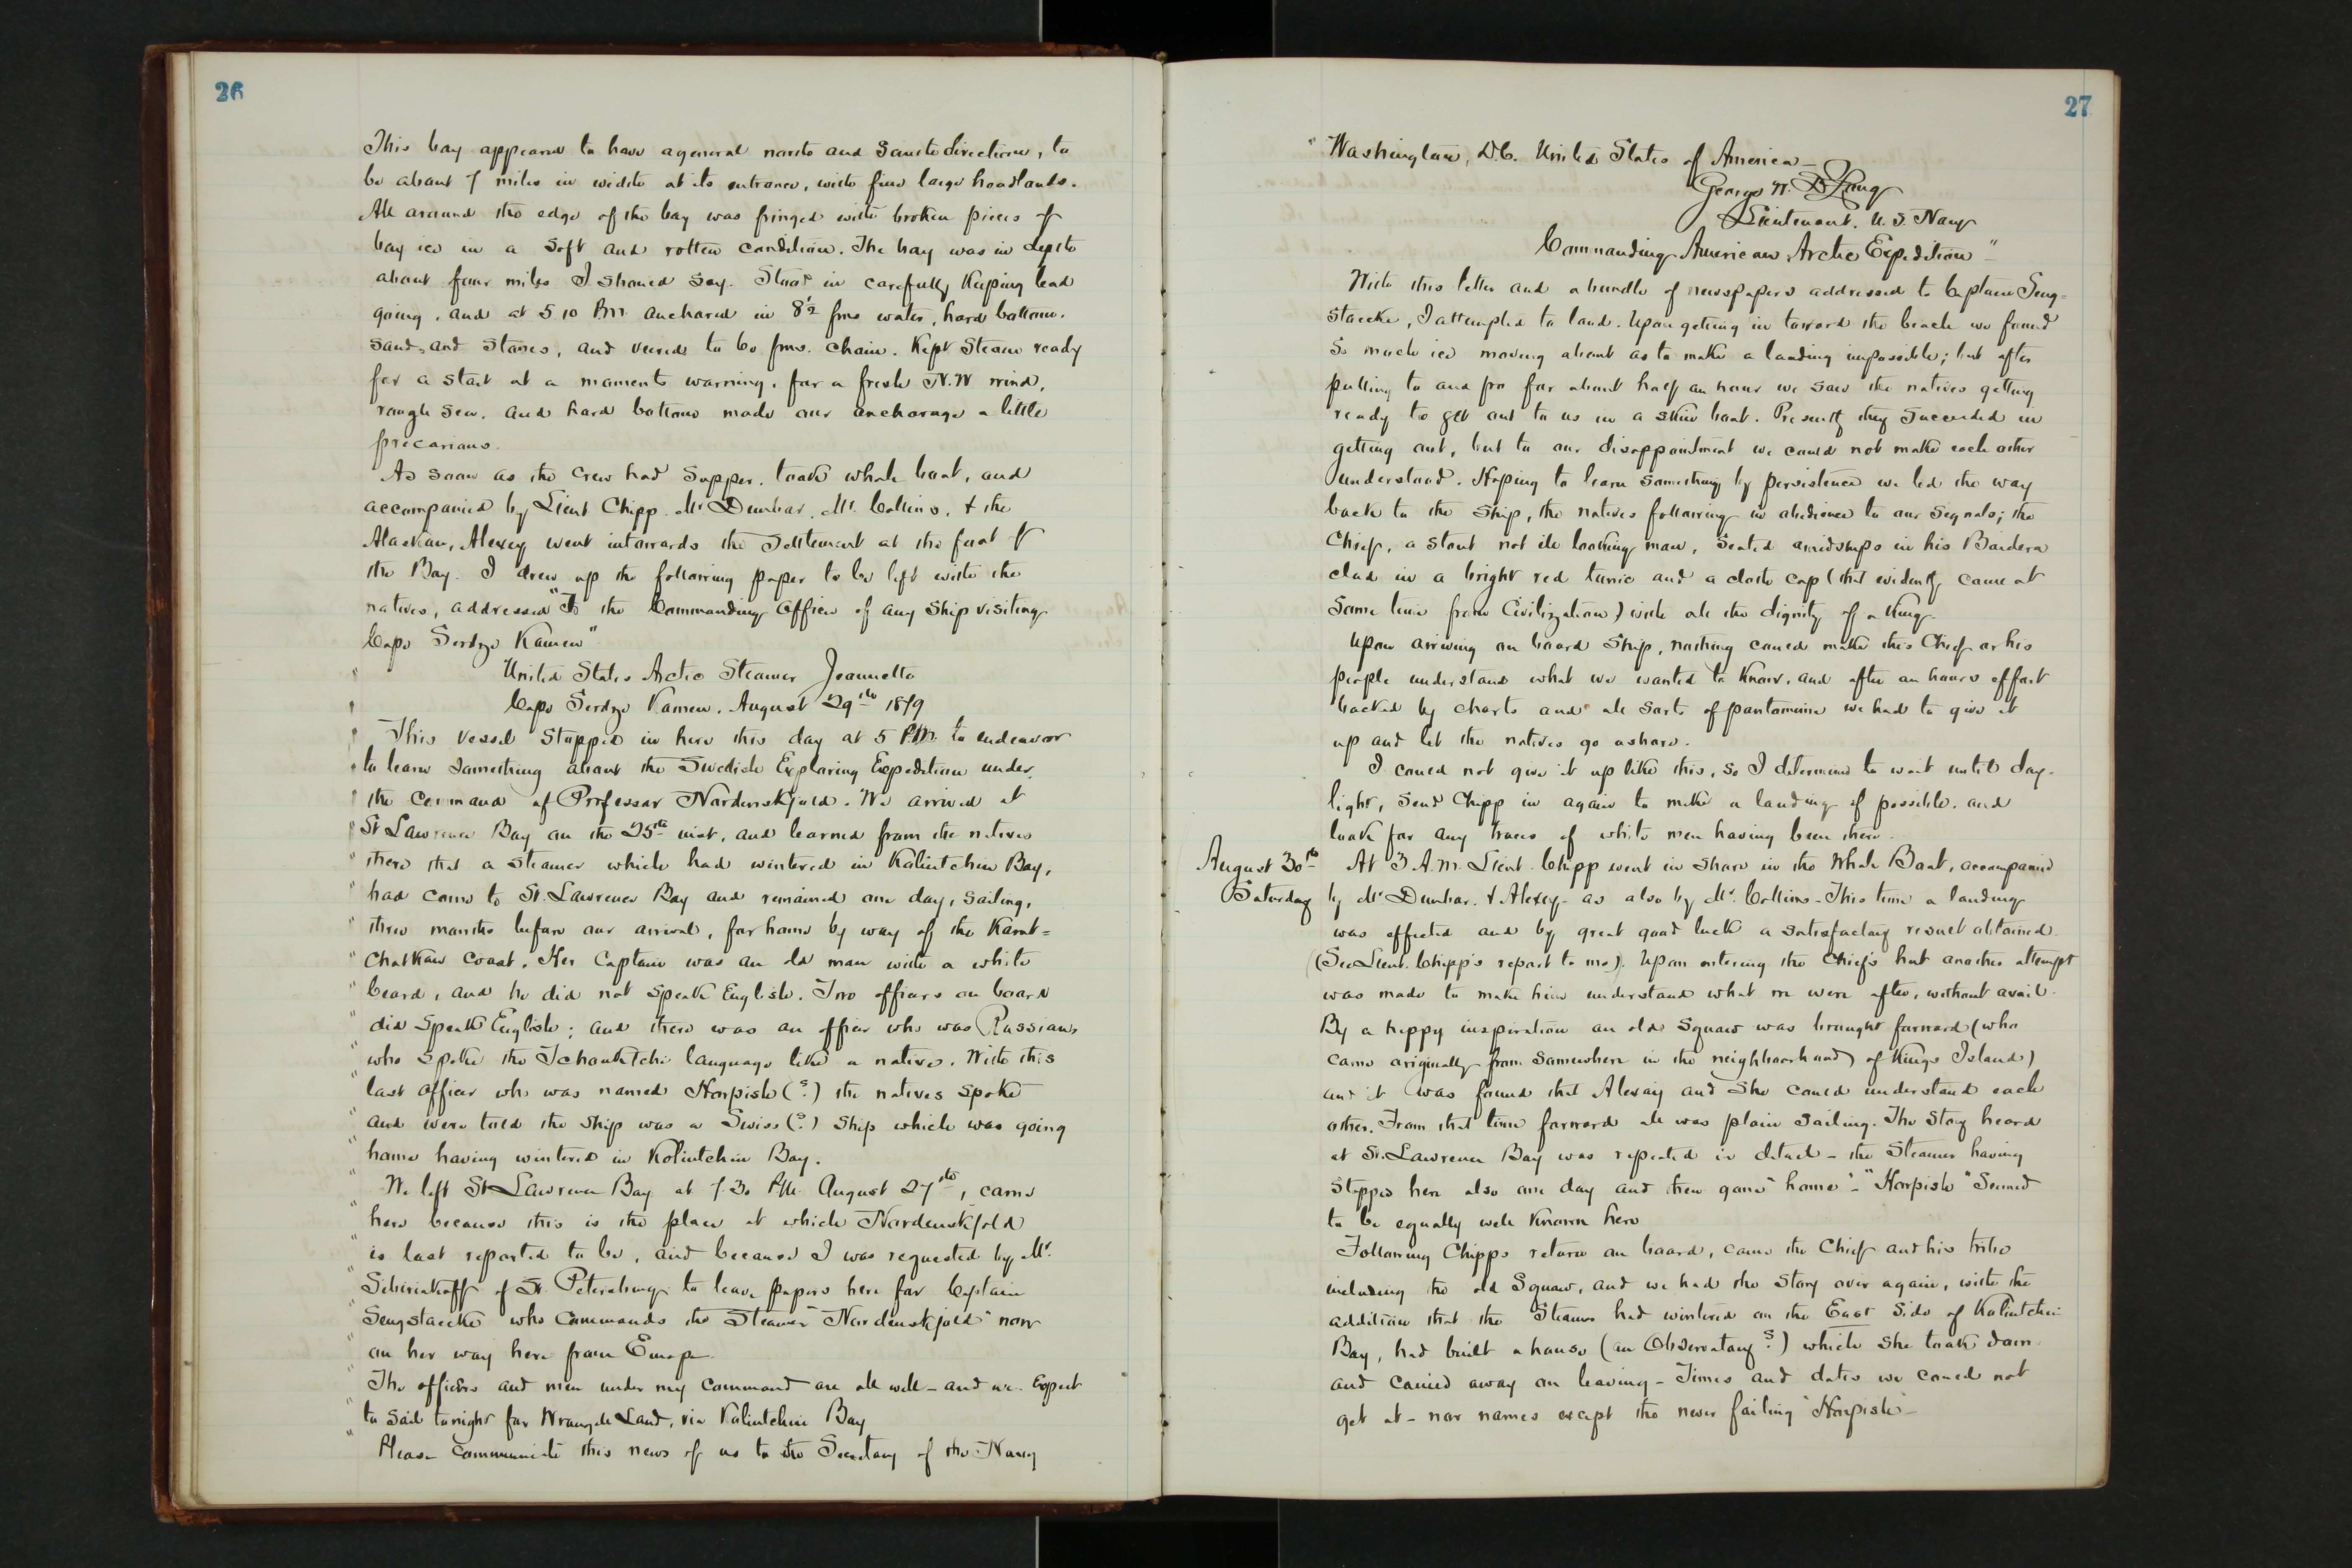 26
This bay appeared to have a general north and South direction, to
be about 7 miles in width at its entrance, with fine large headlands.
All around the edge of the bay was fringed with broken pieces of
bay ice in a soft and rotten condition. The bay was in depth
about four miles I should say. Stood in carefully Keeping lead
going, and at 5 10 P.M. anchored in 8½ fms water, hard bottom.
Sand, and Stones, and veered to 60 fms. chain. Kept Steam ready
for a start at a moments warning, for a fresh N.W wind,
rough sea, and hard bottom made our anchorage a little
precarious.
As soon as the crew had Supper, took whale boat, and
accompanied by Lieut Chipp. Mr Dunbar, Mr. Collins, & the
Alaskan, Alexey went in towards the Settlement at the foot of
the Bay. I drew up the following paper to be left with the
natives, addressed "To the Commanding Officer of any Ship visiting
Cape Serdze Kamen"
" United States Arctic Steamer Jeannette
" Cape Serdze Kamen. August 29th 1879
" This vessel stopped in here this day at 5 P.M. to endeavor
" to learn something about the Swedish Exploring Expedition under
" the command of Professor Nordenskjold. We arrived at
" St Lawrence Bay on the 25th inst, and learned from the natives
" there that a steamer which had wintered in Koliutchin Bay,
" had come to St. Lawrence Bay and remained one day, sailing,
" three months before our arrival, for home by way of the Kamt=
" chatkan coast. Her Captain was an old man with a white
" beard, and he did not speak English. Two officers on board
" did speak English; and there was an officer who was Russian,
" who spoke the Tchouktchi language like a native. With this
" last officer who was named Horpish (?) the natives spoke
" and were told the ship was a Swiss (?) Ship which was going
" home having wintered in Koliutchin Bay.
" We left St Lawrence Bay at 7.30 P.M. August 27th, came
" here because this is the place at which Nordenskjold
" is last reported to be, and because I was requested by Mr.
" Sibiriakoff of St. Petersburg to leave papers here for Captain
" Sengstacke who commands the Steamer "Nordenskjold" now
" on her way here from Europe.
" The officers and men under my command are all well - and we expect
" to sail tonight for Wrangle Land, via Koliutchin Bay
" Please communicate this news of us to the Secretary of the Navy
27
" Washington, D.C. United States of America -
George W. De Long
Lieutenant. U. S. Navy
Commanding American Arctic Expedition"
With this letter and a bundle of newspapers addressed to Captain Seng=
stacke, I attempted to land. Upon getting in toward the beach we found
So much ice moving about as to make a landing impossible; but after
pulling to and fro for about half an hour we saw the natives getting
ready to get out to us in a skin boat. Presently they succeeded in
getting out, but to our disappointment we could not make each other
understood. Hoping to learn something by persistence we led the way
back to the Ship, the natives following in obedience to our signals; the
Chief, a stout not ill looking man, seated amidships in his Baidera
clad in a bright red tunic and a cloth cap (that evidently came at
some time from Civilization) with all the dignity of a King.
Upon arriving on board Ship, nothing could make this Chief or his
people understand what we wanted to Know, and after an hours effort
backed by charts and all sorts of pantomime we had to give it
up and let the natives go ashore.
I could not give it up like this, so I determined to wait until day-
light, send Chipp in again to make a landing if possible, and
look for any traces of white men having been there.
August 30th At 3 A.M. Lieut. Chipp went in shore in the Whale Boat, accompanied
Saturday by Mr Dunbar. & Alexey - as also by Mr. Collins - This time a landing
was effected and by great good luck a satisfactory result obtained.
(See Lieut. Chipp's report to me). Upon entering the Chief's hut another attempt
was made to make him understand what we were after, without avail.
By a happy inspiration an old Squaw was brought forward (who
came originally from somewhere in the neighborhood of Kings Island)
and it was found that Alexay and She could understand each
other. From that time forward all was plain sailing. The story heard
at St. Lawrence Bay was repeated in detail - the Steamer having
stopped here also one day and then gone "home" - "Horpish" Seemed
to be equally well Known here
Following Chipps return on board, came the Chief and his tribe
including the old Squaw, and we had the story over again, with the
addition that the Steamer had wintered on the East Side of Koliutchin
Bay, had built a house (an Observatory?) which she took down
and carried away on leaving - Times and dates we could not
get at - nor names except the never failing "Horpish" -